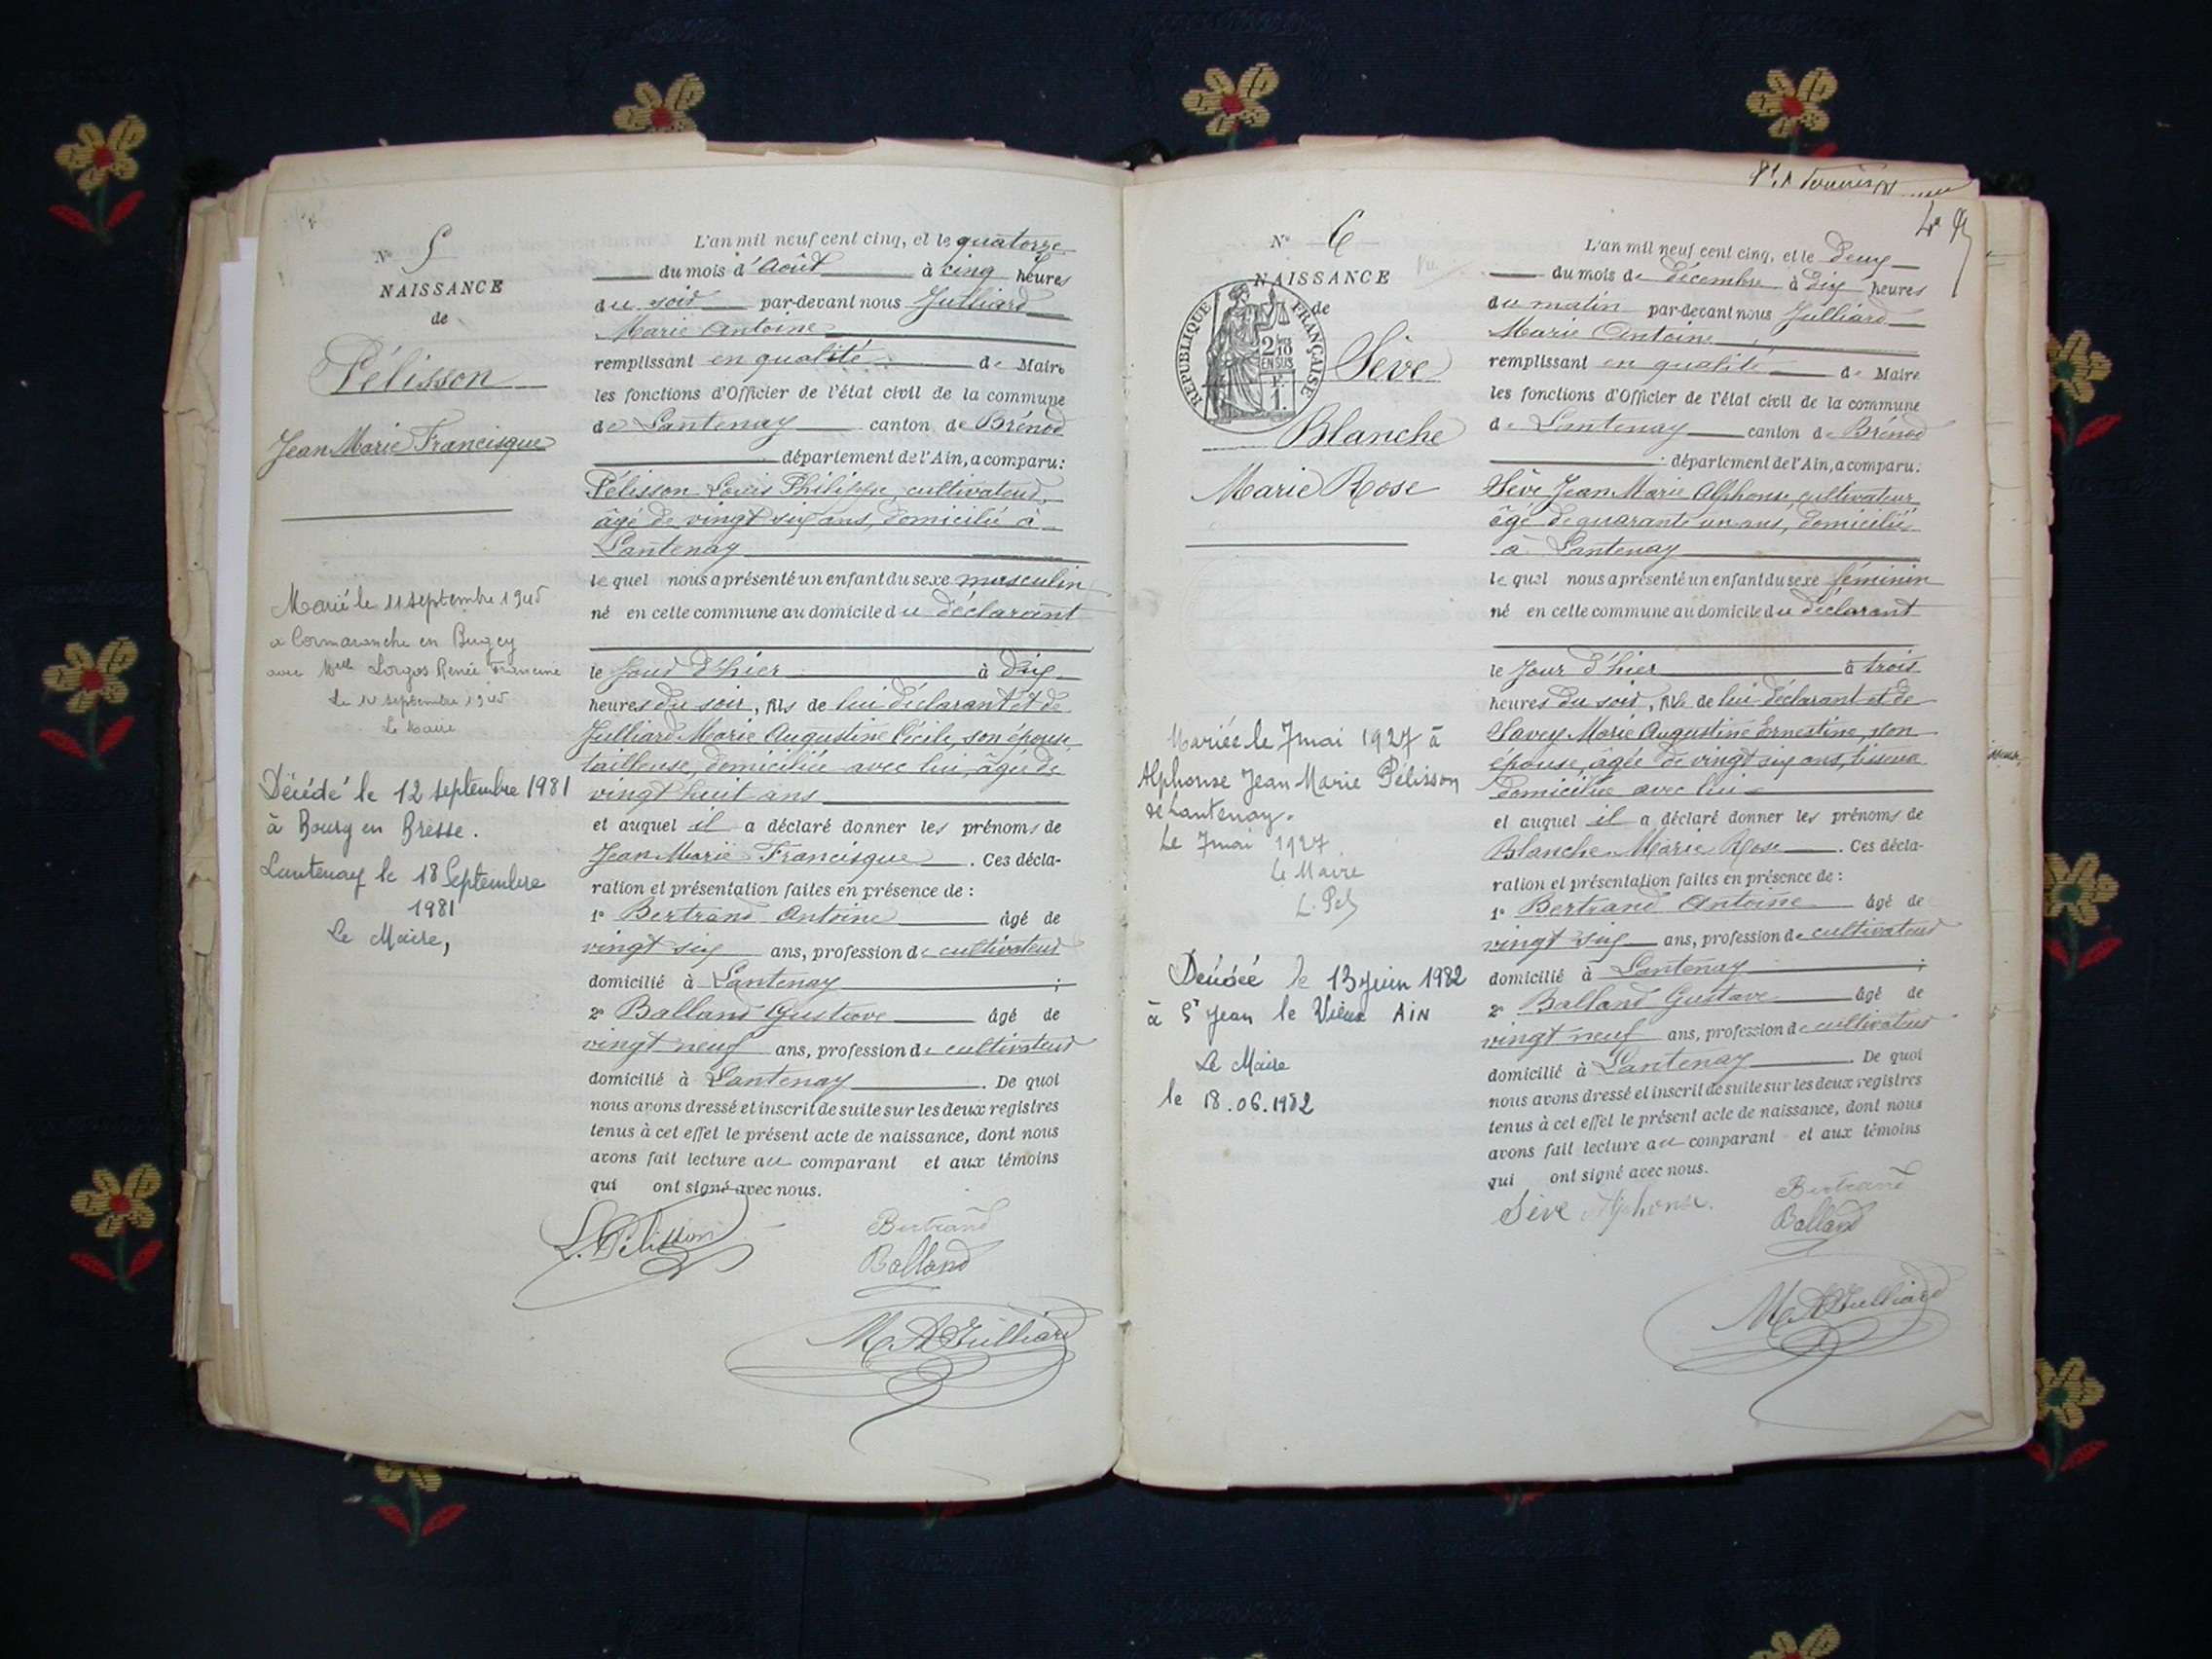 N° 5
NAISSANCE
de
Pélisson
Jean Marie Francisque
Marié le 11 septembre 1945
a Cormaranche en Bugey
avec Melle Renée Francine
septembre 1945
Le Maire
Décédé le 12 septembre 1981
à Bourg en Bresse.
Lantenay le 18 Septembre
1981
Le Maire,
L'an mil neuf cent cinq, et le quatorze
du mois d'Août à cinq heures
du soir par-devant nous Julliard
Marie Antoine
remplissant en qualité de Maire
les fonctions d'Officier de l'état civil de la commune
de Lantenay canton de Brénod
département de l'Ain, a comparu:
Pélisson Louis Philippe, cultivateur,
âgé de vingt six ans, domicilié à
Lantenay
lequel nous a présenté un enfant du sexe masculin
né en cette commune au domicile du déclarant
le jour d'hier à dix
heures du soir, fils de lui déclarant et de
Julliard Marie Augustine Cécile, son épouse,
tailleuse, domiciliée avec lui, âgée de
vingt huit ans
et auquel il a déclaré donner les prénoms de
Jean Marie Francisque. Ces décla-
ration et présentation faites en présence de :
1° Bertrand Antoine âgé de
vingt six ans, profession de cultivateur
domicilié à Lantenay ;
2° Balland Gustave âgé de
vingt neuf ans, profession de cultivateur
domicilié à Lantenay. De quoi
nous avons dressé et inscrit de suite sur les deux registres
tenus à cet effet le présent acte de naissance, dont nous
avons fait lecture au comparant et aux témoins
qui ont signé avec nous.
L. Pélisson
Bertrand
Balland
M A Julliard
N° 6
NAISSANCE
de
REPUBLIQUE FRANÇAISE
2/10
EN SUS
F.
1.
Sève
Blanche
Marie Rose
Mariée le 7 mai 1927 à
Alphonse Jean Marie Pélisson
de Lantenay.
Le 7 mai 1927
Le Maire
Décédée le 13 juin 1982
à St Jean le Vieux AIN
Le Maire
le 18.06.1982
L'an mil neuf cent cinq, et le deux
du mois de décembre à dix heures
du matin par-devant nous Julliard
Marie Antoine
remplissant en qualité de Maire
les fonctions d'Officier de l'état civil de la commune
de Lantenay canton de Brénod
département de l'Ain, a comparu:
Sève Jean Marie Alphonse, cultivateur
âgé de quarante un ans, domicilié
à Lantenay
lequel nous a présenté un enfant du sexe féminin
né en cette commune au domicile du déclarant
le jour d'hier à trois
heures du soir, fille de lui déclarant et de
Savey Marie Augustine Ernestine, son
épouse, âgée de vingt six ans,
domiciliée avec lui
et auquel il a déclaré donner les prénoms de
Blanche Marie Rose. Ces décla-
ration et présentation faites en présence de :
1° Bertrand Antoine âgé de
vingt six ans, profession de cultivateur
domicilié à Lantenay ;
2° Balland Gustave âgé de
vingt neuf ans, profession de cultivateur
domicilié à Lantenay. De quoi
nous avons dressé et inscrit de suite sur les deux registres
tenus à cet effet le présent acte de naissance, dont nous
avons fait lecture au comparant et aux témoins
qui ont signé avec nous.
Sève Alphonse.
Bertrand
Balland
M A Julliard